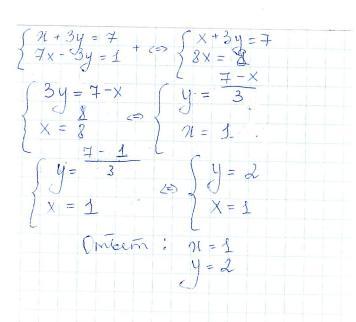 { x + 3y = 7
{ 7x - 3y = 1 + ⇔ { x + 3y = 7
{ 8x = 8
{ 3y = 7-x
{ x = 8/8 ⇔ { y = (7-x)/3
{ x = 1.
{ y = (7-1)/3
{ x = 1 ⇔ { y = 2
{ x = 1
Ответ: x = 1
y = 2